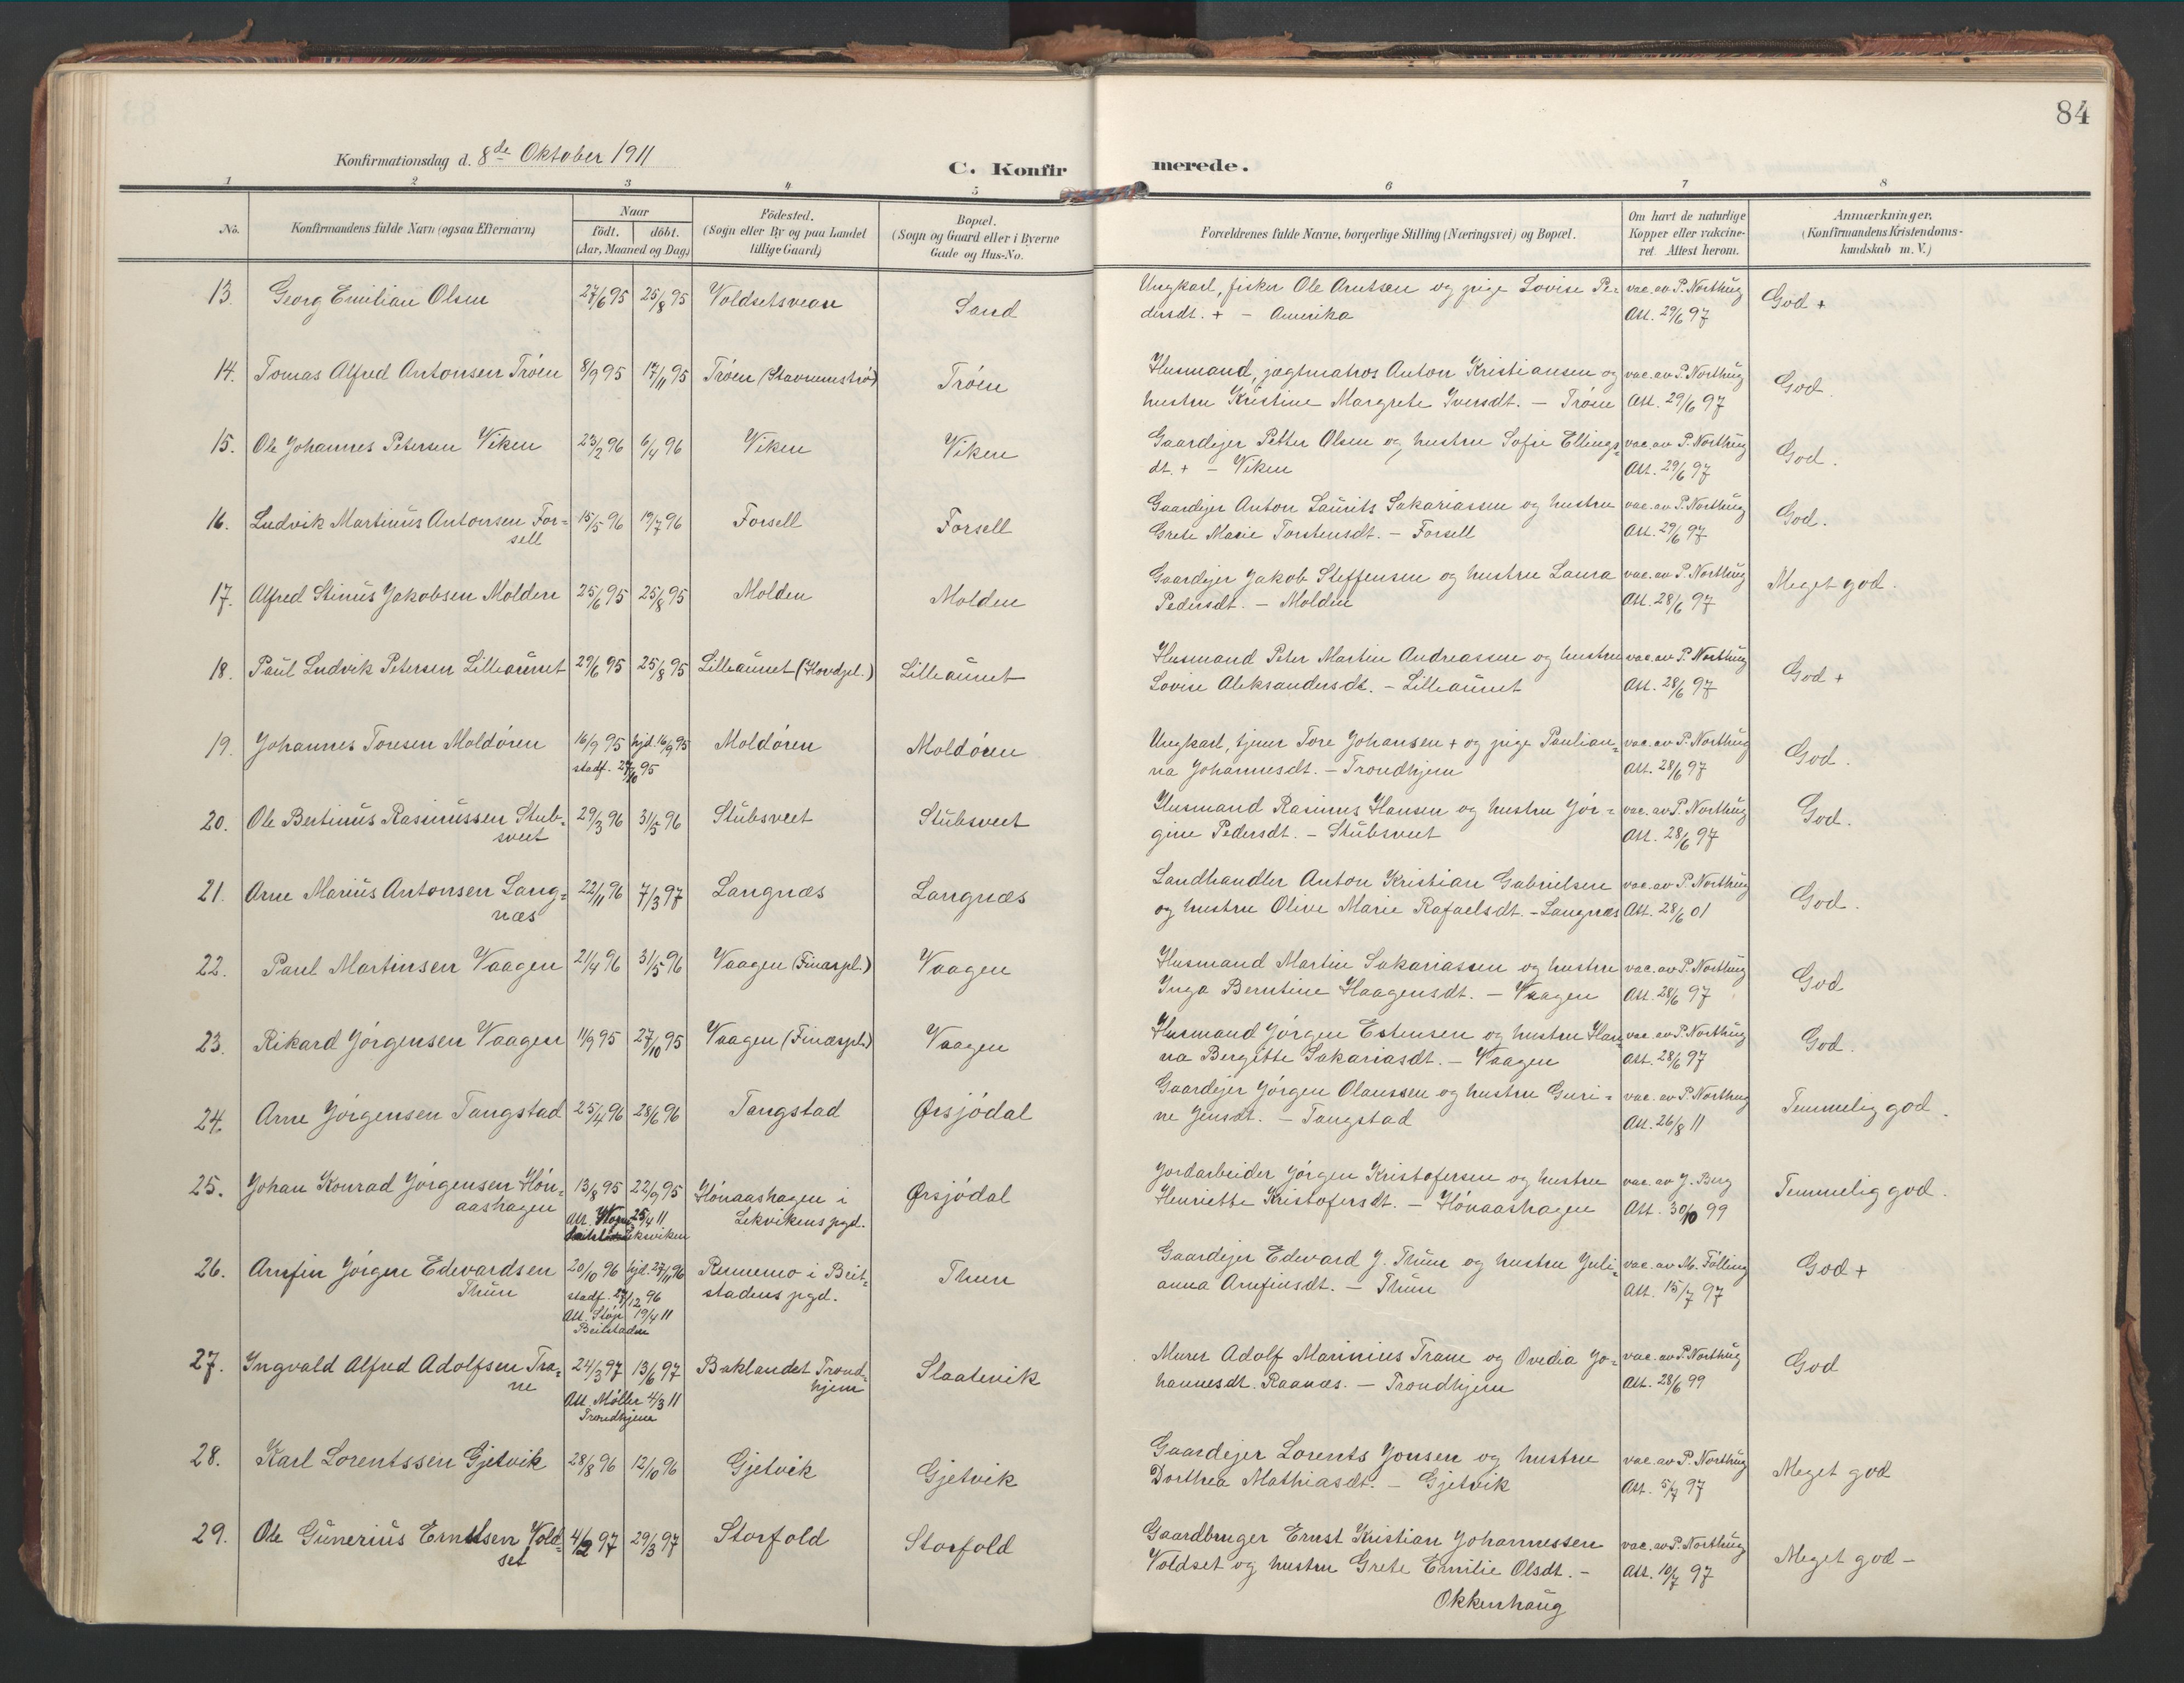 84
Konfirmationsdag d. 8de Oktober 1911
C. Konfirmerede.
1 2 3 4 5 6 7 8
No. Konfirmandens fulde Navn (ogsaa Efternavn) Naar födt. döbt. (Aar, Maaned og Dag) Födested. (Sogn eller By og paa Landet tillige Gaard) Bopæl. (Sogn og Gaard eller i Byerne Gade og Hus-No. Forældrenes fulde Navne, borgerlige Stilling (Næringsvei) og Bopæl. Om havt de naturlige Kopper eller vakcineret. Attest herom. Anmærkninger, (Konfirmandens Kristendomskundskab m. V.)
13. Georg Emilian Olsen 27/6 95 25/8 95 Voldsetsvean Sand Ungkarl, fisker Ole Arntsen og pige Lovise Pe- vac. av P. Northug God +
dersdt. + - Amerika Att. 29/6 97
14. Tomas Alfred Antonsen Tröen 8/9 95 17/11 95 Tröen (Stavrumströ) Tröen Husmand, jægtmatros Anton Kristiansen og vac. av P. Northug God.
hustru Kristine Margrete Iversdt. - Tröen Att. 29/6 97
15. Ole Johannes Petersen Viken 23/2 96 6/4 96 Viken Viken Gaardejer Petter Olsen og hustru Sofie Ellings- vac. av P. Northug God.
dt. + - Viken Att. 29/6 97
16. Ludvik Martinus Antonsen For- 15/5 96 19/7 96 Forsell Forsell Gaardejer Anton Laurits Sakariassen og hustru vac. av P. Northug God.
sell Grete Marie Torstensdt. - Forsell Att. 29/6 97
17. Alfred Stinus Jakobsen Molden 25/6 95 25/8 95 Molden Molden Gaardejer Jakob Steffensen og hustru Laura vac. av P. Northug Meget god.
Pedersdt. - Molden Att. 28/6 97
18. Paul Ludvik Petersen Lilleaunet 29/6 95 25/8 95 Lilleaunet (Hovdpl.) Lilleaunet Husmand Peter Martin Andreassen og hustru vac. av P. Northug God +
Lovise Aleksandersdt. - Lilleaunet Att. 28/6 97
19. Johannes Toresen Moldören 16/9 95 hjd. 16/9 95 Moldören Moldören Ungkarl, tjener Tore Johansen + og pige Paulian- vac. av P. Northug God.
stadf. 27/10 95 na Johannesdt. - Trondhjem Att. 28/6 97
20. Ole Bertinus Rasmussen Stub- 29/3 96 31/5 96 Stubsveet Stubsveet Husmand Rasmus Hansen og hustru Jör- vac. av P. Northug God.
sveet gine Pedersdt. - Stubsveet Att. 28/6 97
21. Arne Marius Antonsen Lang- 22/11 96 7/3 97 Langnæs Langnæs Landhandler Anton Kristian Gabrielsen vac. av P. Northug God.
næs og hustru Olive Marie Rafaelsdt. - Langnæs Att. 28/6 01
22. Paul Martinsen Vaagen 21/4 96 31/5 96 Vaagen (Finæspl.) Vaagen Husmand Martin Sakariassen og hustru vac. av P. Northug God
Inga Berntine Haagensdt. - Vaagen Att. 28/6 97
23. Rikard Jörgensen Vaagen 11/9 95 27/10 95 Vaagen (Finæspl.) Vaagen Husmand Jörgen Estensen og hustru Han- vac. av P. Northug God.
na Bergitte Sakariasdt. - Vaagen Att. 28/6 97
24. Arne Jörgensen Tangstad 25/4 96 28/6 96 Tangstad Ørsjödal Gaardejer Jörgen Olaussen og hustru Guri- vac. av P. Northug Temmelig god.
ne Jensdt. - Tangstad Att. 26/8 11
25. Johan Konrad Jörgensen Hön- 13/8 95 22/9 95 Hönaashagen i Ørsjödal Jordarbeider Jörgen Kristofersen og hustru vac. av J. Berg Temmelig god.
aashagen Att. 25/4 11 Leksviken Lekvikens pgd. Henriette Kristofersdt. - Hönaashagen Att. 30/10 99
26. Arnfin Jörgen Edevardsen 20/10 96 hjd. 27/11 96 Rennemo i Beit- Thun Gaardejer Edevard J. Thun og hustru Juli- vac. av M. Fölling God +
Thun stadf. 27/12 96 stadens pgd. anna Arnfinsdt. - Thun Att. 15/7 97
Att. Støp 19/4 11
Beitstaden
27. Ingvald Alfred Adolfsen Tra- 24/3 97 13/6 97 Baklandet Trond- Slaatevik Murer Adolf Marinius Trane og Ovedia Jo- vac. av P. Northug God
ne Att. Möller 4/3 11 hjem hannesdt. Raanæs. - Trondhjem Att. 28/6 99
Trondhjem
28. Karl Lorentssen Gjetvik 28/8 96 12/10 96 Gjetvik Gjetvik Gaardejer Lorents Jonsen og hustru vac. av P. Northug Meget god
Dorthea Mathiasdt. - Gjetvik Att. 5/7 97
29. Ole Gunerius Ernstsen Vold- 4/2 97 29/3 97 Storfold Storfold Gaardbruger Ernst Kristian Johannessen vac. av P. Northug Meget god -
set Voldset og hustru Grete Emilie Olsdt. - Att. 10/7 97
Okkenhaug